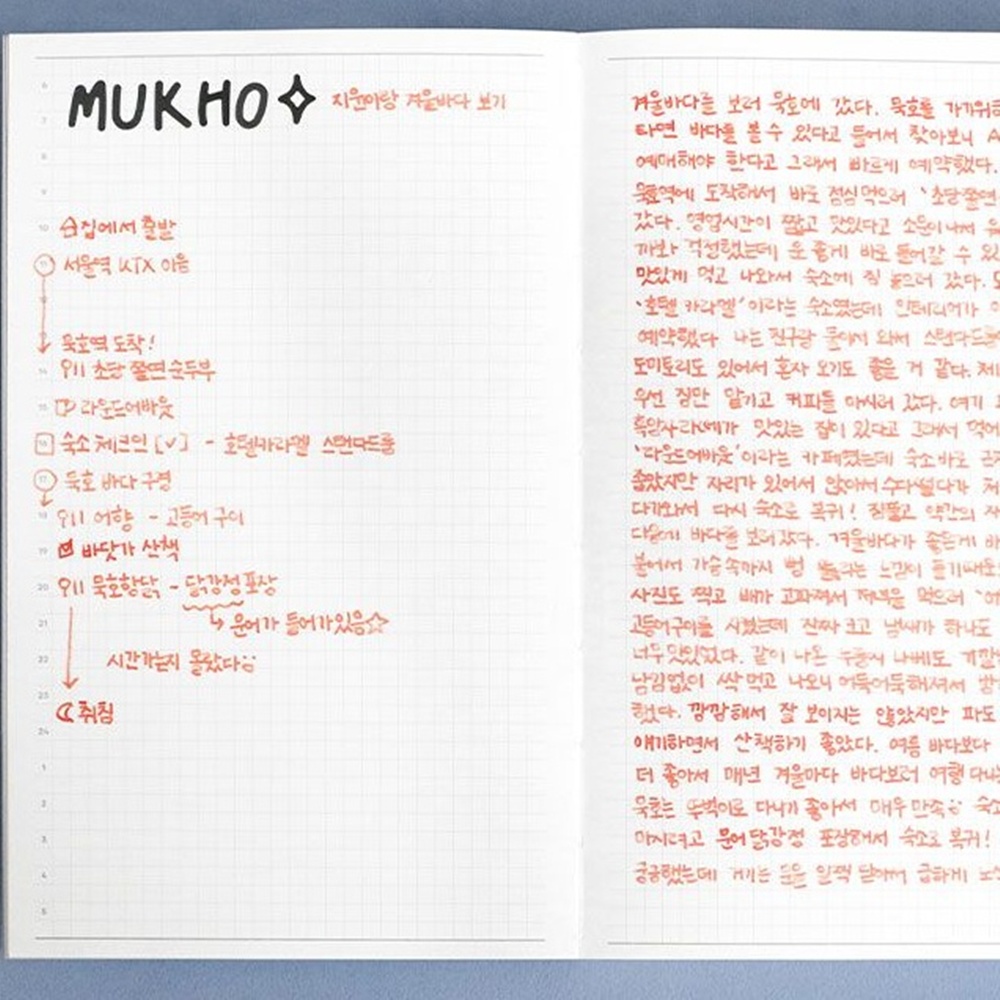 MUKHO 지원이랑 겨울바다 보기
6
7
8
9
10 집에서 출발
11 서울역 KTX 이음
12
13 묵호역 도착!
14 초당쫄면순두부
15 라운드어바웃
16 숙소 체크인 [✓] - 호텔카라멜 스탠다드룸
17 묵호 바다 구경
18 어향 - 고등어 구이
19 바닷가 산책
20 묵호항닭 - 닭강정 포장
21 ↳ 문어가 들어가있음☆
22 시간가는지 몰랐다
23 취침
24
1
2
3
4
5
겨울바다를 보러 묵호에 갔다. 묵호를 가기위해
타면 바다를 볼 수 있다고 들어서 찾아보니
예매해야 한다고 그래서 빠르게 예약했다.
묵호역에 도착해서 바로 점심먹으러 '초당쫄면
갔다. 영업시간이 짧고 맛있다고 소문이나서
까봐 걱정했는데 운 좋게 바로 들어갈 수 있
맛있게 먹고 나와서 숙소에 짐 놓으러 갔다.
'호텔 카라멜'이라는 숙소였는데 인테리어가
예약했다 나는 친구랑 둘이서 와서 스탠다드룸
도미토리도 있어서 혼자 오기도 좋을 거 같다.
우선 짐만 맡기고 커피를 마시러 갔다. 여기
흑임자라떼가 맛있는 집이 있다고 그래서 먹어
'라운드어바웃'이라는 카페였는데 숙소바로
좁았지만 자리가 있어서 앉아서 수다떨다가
다가와서 다시 숙소로 복귀! 짐풀고 약간의
다음에 바다를 보러갔다. 겨울바다가 좋은게
불어서 가슴속까지 뻥 뚫리는 느낌이 들기때문
사진도 찍고 배가 고파져서 저녁을 먹으러
고등어구이를 시켰는데 진짜 크고 냄새가 하나도
너무맛있었다. 같이 나온
남김없이 싹 먹고 나오니 어둑어둑해져서
했다. 깜깜해서 잘 보이지는 않았지만 파도
얘기하면서 산책하기 좋았다. 여름 바다보다
더 좋아서 매년 겨울마다 바다보러 여행 다니
묵호는 뚜벅이로 다니기 좋아서 매우 만족
마시려고 문어닭강정 포장해서 숙소로 복귀!
궁금했는데 거기는 문을 일찍 닫아서 급하게